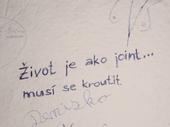 život je ako joint...
musí se kroutit